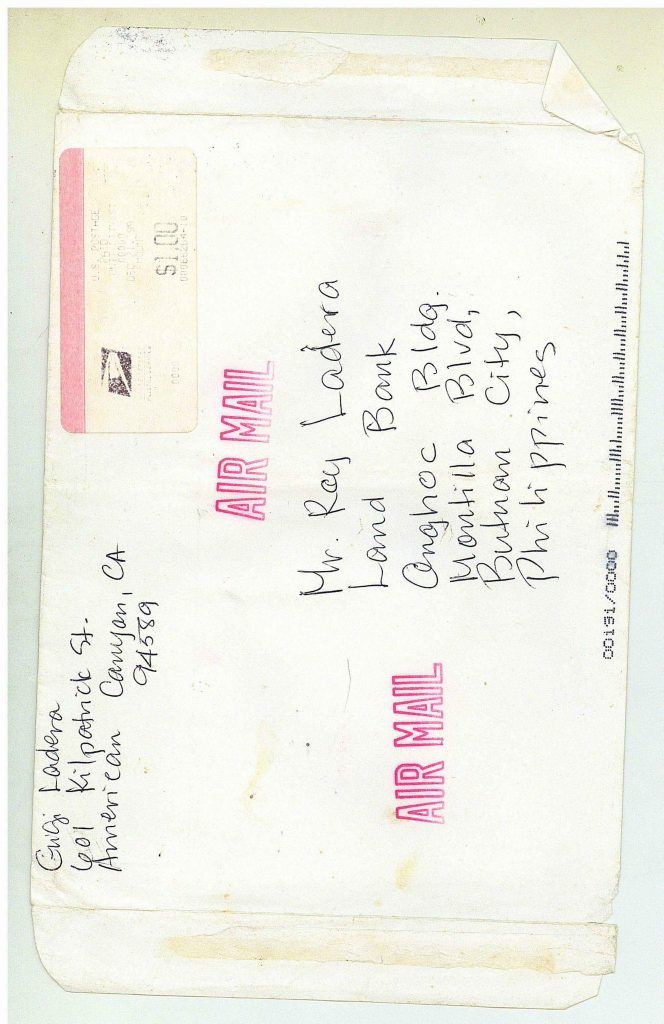 GiGi Ladera
601 Kilpatrick St.
American Canyon, CA
94589
U.S. POSTAGE
PAID
$1.00
0000
AIR MAIL
Mr. Rey Ladera
Land Bank
Onghoc Bldg.
Montilla Blvd,
Butuan City,
Philippines
AIR MAIL
00191/0000